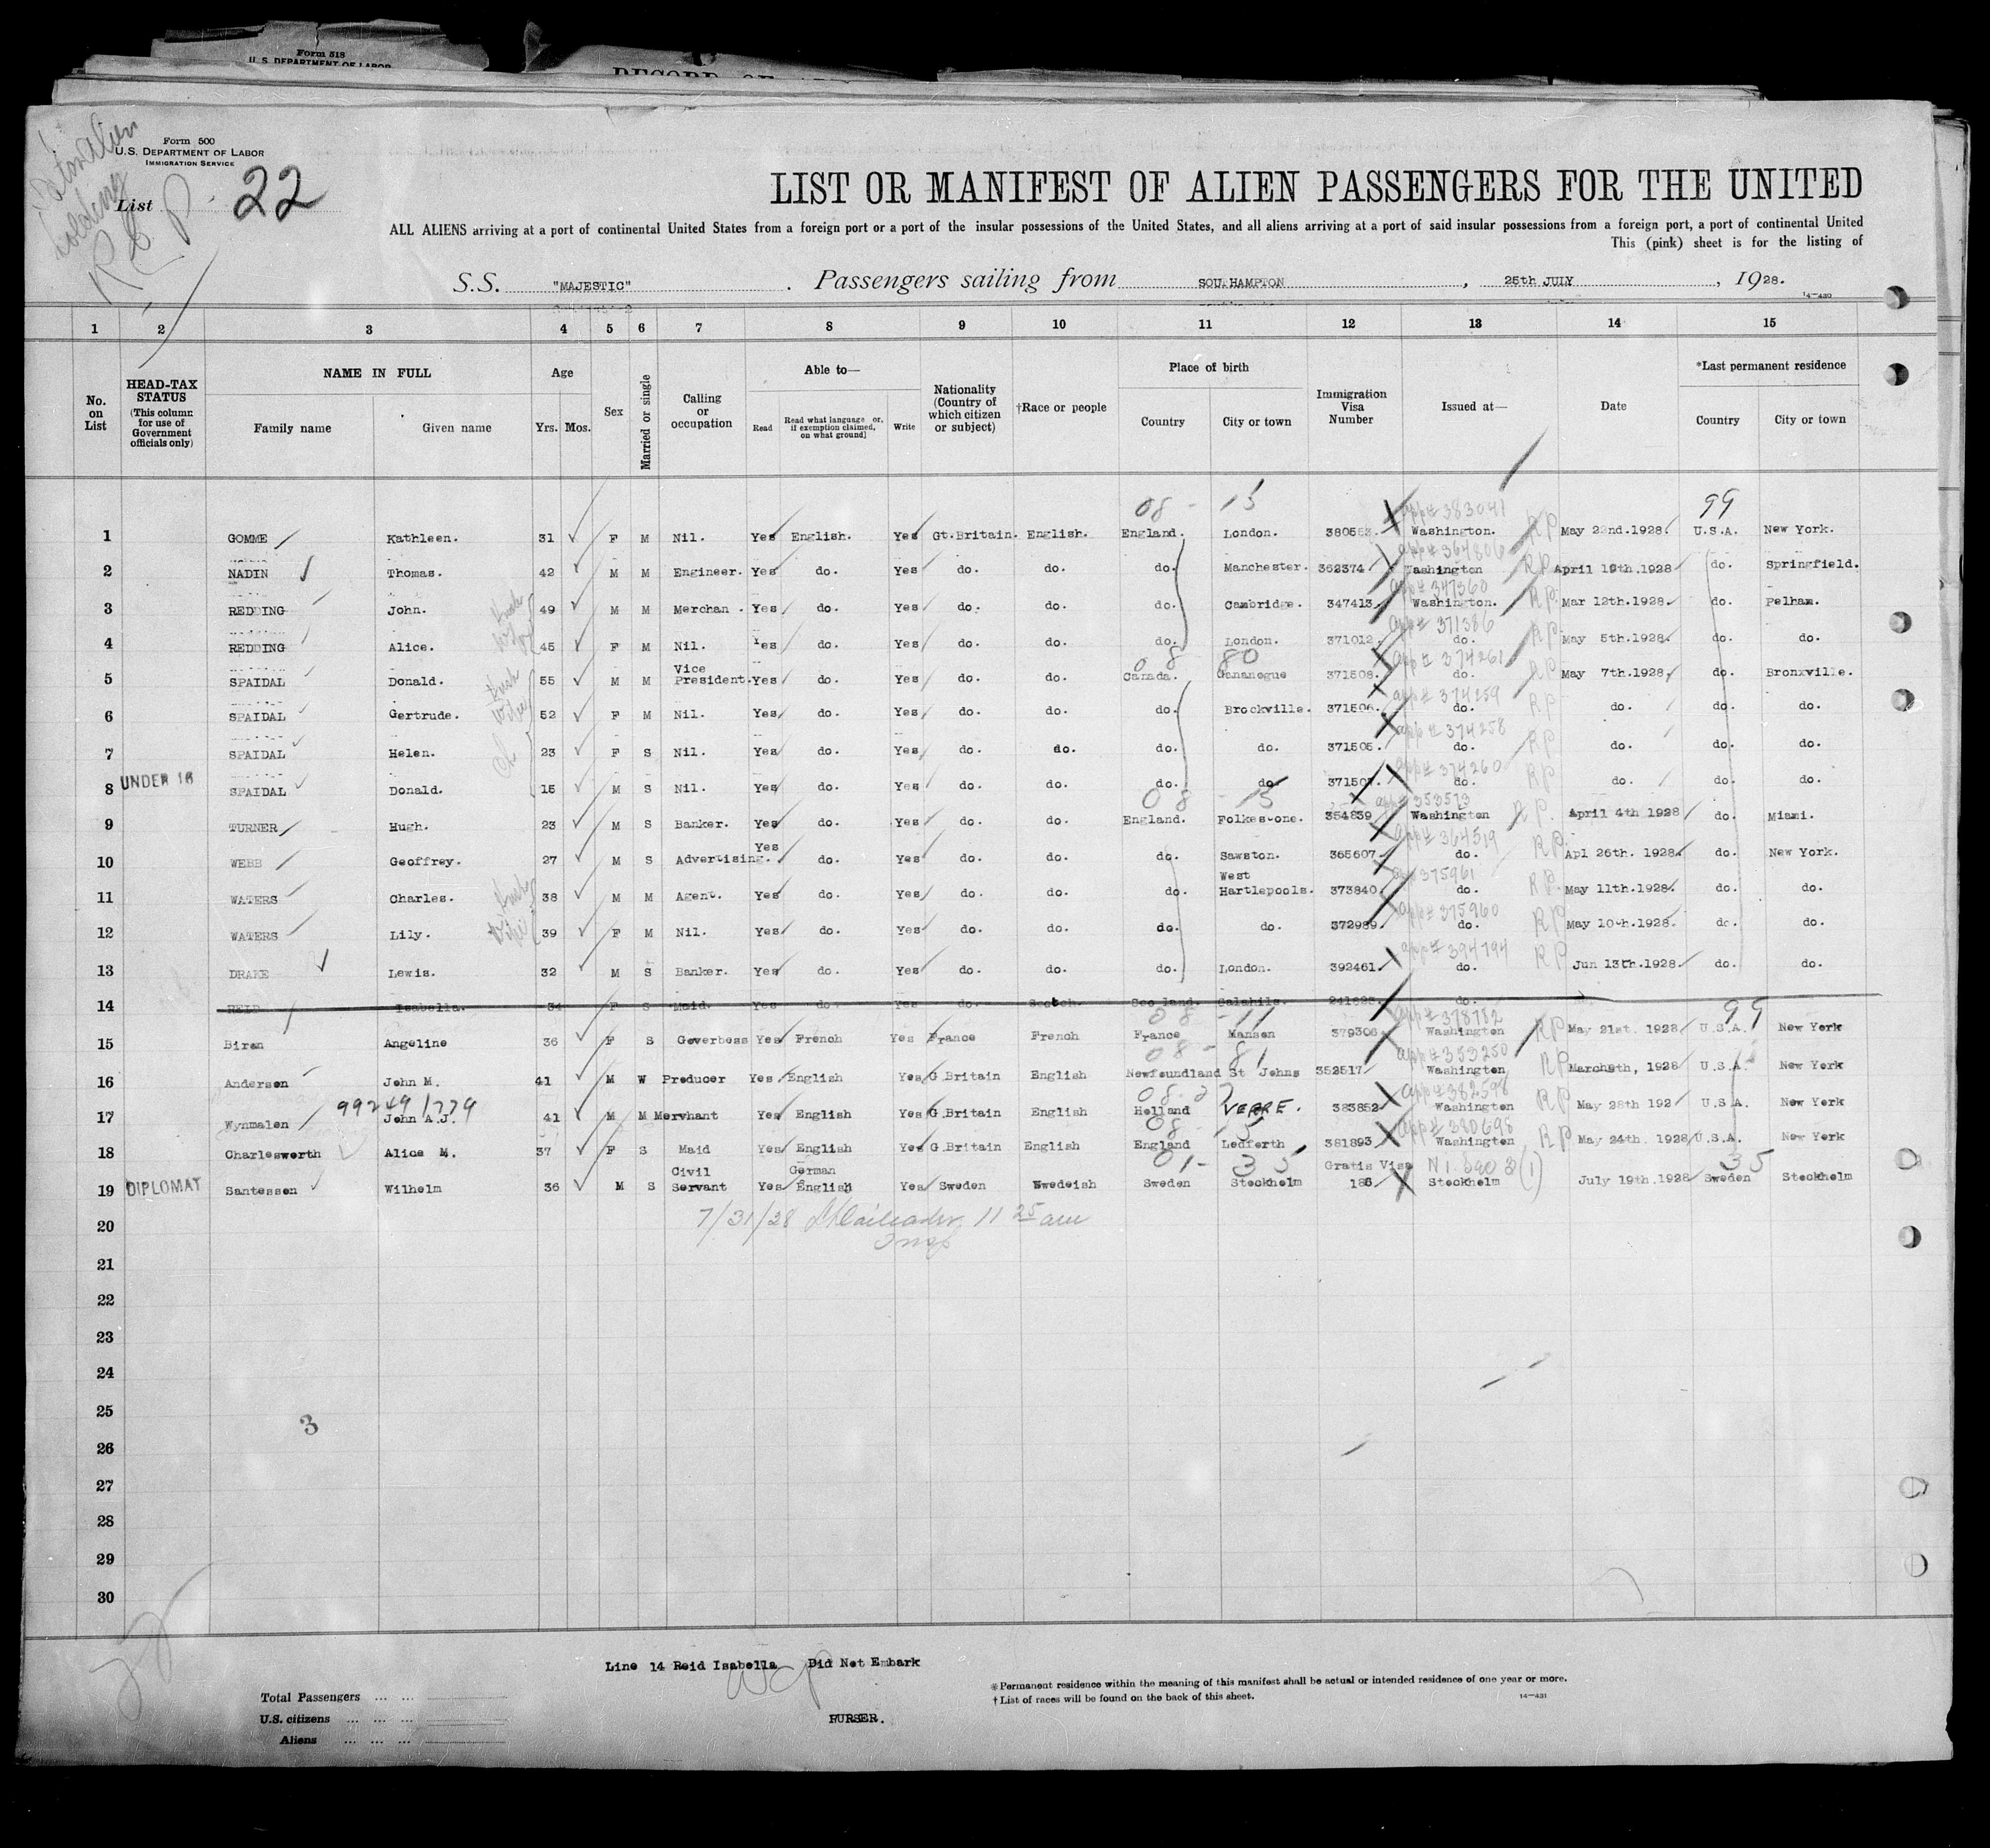 Form 518
U. S. DEPARTMENT OF LABOR
Form 500
U.S. DEPARTMENT OF LABOR
IMMIGRATION SERVICE
List 22
R P
LIST OR MANIFEST OF ALIEN PASSENGERS FOR THE UNITED
ALL ALIENS arriving at a port of continental United States from a foreign port or a port of the insular possessions of the United States, and all aliens arriving at a port of said insular possessions from a foreign port, a port of continental United
This (pink) sheet is for the listing of
S.S. "MAJESTIC" . Passengers sailing from SOUTHAMPTON , 25th JULY , 1928.
14-430
1 2 3 4 5 6 7 8 9 10 11 12 13 14 15
No. on List
HEAD-TAX STATUS (This column for use of Government officials only)
NAME IN FULL
Family name Given name
Age
Yrs. Mos.
Sex
Married or single
Calling or occupation
Able to—
Read
Read what language or, if exemption claimed, on what ground]
Write
Nationality (Country of which citizen or subject)
†Race or people
Place of birth
Country City or town
Immigration Visa Number
Issued at—
Date
*Last permanent residence
Country City or town
08 - 15 app# 383041 99
1 GOMME Kathleen. 31 F M Nil. Yes English. Yes Gt.Britain. English. England. London. 380553. Washington. RP May 22nd.1928. U.S.A. New York.
app# 364806
2 NADIN Thomas. 42 M M Engineer. Yes do. Yes do. do. do. Manchester. 362374 Washington RP April 19th.1928 do. Springfield.
app# 347360
3 REDDING John. 49 M M Merchan . Yes do. Yes do. do. do. Cambridge. 347413 Washington. RP Mar 12th.1928. do. Pelham.
app# 371386
4 REDDING Alice. 45 F M Nil. Yes do. Yes do. do. do. London. 371012. do. RP May 5th.1928. do. do.
08 80 app# 374261
5 SPAIDAL Donald. 55 M M Vice President. Yes do. Yes do. do. Canada. Gananogue 371508. do. RP May 7th.1928. do. Bronxville.
app# 374259
6 SPAIDAL Gertrude. 52 F M Nil. Yes do. Yes do. do. do. Brockville. 371506. do. RP do. do. do.
app# 374258
7 SPAIDAL Helen. 23 F S Nil. Yes do. Yes do. do. do. do. 371505. do. RP do. do. do.
app# 374260
8 UNDER 16 SPAIDAL Donald. 15 M S Nil. Yes do. Yes do. do. do. do 371507. do. RP do. do. do.
08 - 15 app# 353573
9 TURNER Hugh. 23 M S Banker. Yes do. Yes do. do. England. Folkestone. 354839 Washington RP. April 4th 1928 do. Miami.
app# 364519
10 WEBB Geoffrey. 27 M S Advertising. Yes do. Yes do. do. do. Sawston. 365607 do. RP. Apl 26th. 1928. do. New York.
app# 375961
11 WATERS Charles. 38 M M Agent. Yes do. Yes do. do. do. West Hartlepools. 373840. do. RP. May 11th.1928. do. do.
app# 375960
12 WATERS Lily. 39 F M Nil. Yes do. Yes do. do. do. do. 372989. do. RP May 10th.1928. do. do.
app# 394794
13 DRAKE Lewis. 32 M S Banker. Yes do. Yes do. do. do. London. 392461. do. RP Jun 13th.1928. do. do.
14 REID Isabella. 34 F S Maid. Yes do. Yes do. Scotch. Scotland. Galahils. do.
08 - 11 app# 378782 99
15 Biren Angeline 36 F S Goverbess Yes French Yes France French France Mansen 379306 Washington RP May 21st. 1928 U.S.A. New York
08 - 81 app# 353250
16 Andersen John M. 41 M W Producer Yes English Yes G.Britain English Newfoundland St Johns 352517 Washington RP March8th, 1928 U.S.A. New York
99249 1779 08. app# 382598
17 Wynmalen John A.J. 41 M M Mervhant Yes English Yes G.Britain English Holland VERRE. 383852 Washington RP May 28th 192 U.S.A. New York
08 - 15 app# 380698
18 Charlesworth Alice M. 37 F S Maid Yes English Yes G.Britain English England Ledferth 381893 Washington RP May 24th. 1928 U.S.A. New York
01 - 35 35
19 DIPLOMAT Santessen Wilhelm 36 M S Civil Servant Yes German English Yes Sweden Swedeish Sweden Steckholm Gratis Visa 186 Steckholm July 19th.1928 Sweden Steckholm
20 7/31/28 11 25 am
Insp
21
22
23
24
25
3
26
27
28
29
30
Line 14 Reid Isabella Did Not Embark
*Permanent residence within the meaning of this manifest shall be actual or intended residence of one year or more.
†List of races will be found on the back of this sheet.
14-431
Total Passengers
U.S. citizens
Aliens
PURSER.